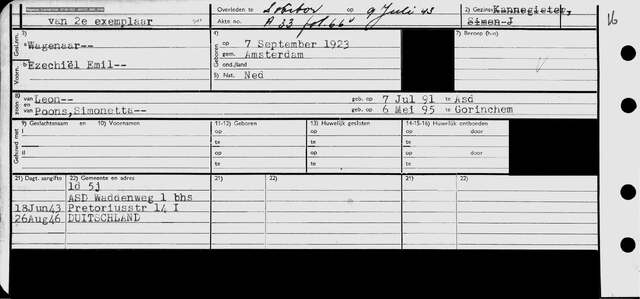 van 2e exemplaar
Overleden te Sobibor op 9 Juli 43
Akte no. A 33 fol. 66
2) Gezins- Kannegieter,
Simon J
V6
3)
a Wagenaar--
b Ezechiël Emil--
Gesl.nm.
Voorn.
4) Geboren
op 7 September 1923
gem. Amsterdam
ond./land
5) Nat. Ned
7) Beroep (b.n.)
zoon 8)
van Leon-- geb. op 7 Jul 91 te Asd
en van Poons, Simonetta-- geb. op 6 Mei 95 te Gorinchem
Gehuwd met
9) Geslachtsnaam en 10) Voornamen
11-12) Geboren
13) Huwelijk gesloten
14-15-16) Huwelijk ontbonden
I
op op op door
te te te
II
op op op door
te te te
21) Dagt. aangifte
22) Gemeente en adres
21)
22)
21)
22)
ld 5j
ASD Waddenweg 1 bhs
18Jun43 Pretoriusstr 14 I
26Aug46 DUITSCHLAND